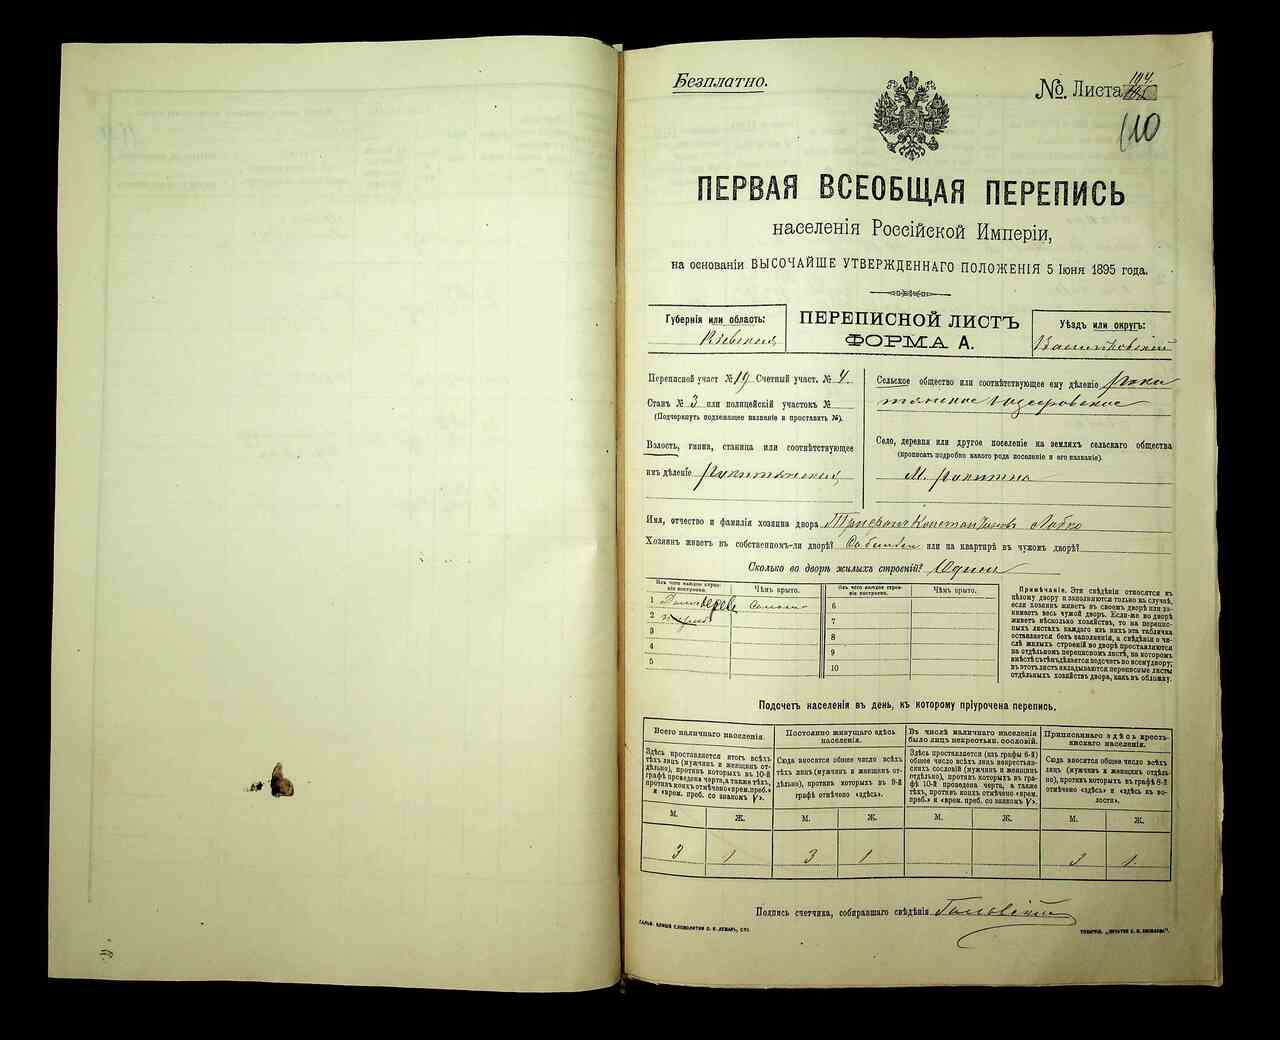 Безплатно.
№ Листа
110
ПЕРВАЯ ВСЕОБЩАЯ ПЕРЕПИСЬ
населенія Россійской Имперіи,
на основаніи ВЫСОЧАЙШЕ УТВЕРЖДЕННАГО ПОЛОЖЕНІЯ 5 Іюня 1895 года.
Губернія или область:
Кіевская
ПЕРЕПИСНОЙ ЛИСТЪ
ФОРМА А.
Уѣздъ или округъ:
Васильковскій
Переписной участ № 19 Счетный участ. № 4.
Станъ № 3 или полицейскій участокъ №
(Подчеркнуть подлежащее названіе и проставить №).
Волость, гмина, станица или соотвѣтствующее
имъ дѣленіе Ракитянская
Сельское общество или соотвѣтствующее ему дѣленіе Раки
тянское
Село, деревня или другое поселеніе на земляхъ сельскаго общества
(прописать подробно какого рода поселеніе и его названіе).
М. Ракитно
Имя, отчество и фамилія хозяина двора Трифонъ Константиновъ Лабко
Хозяинъ живетъ въ собственномъ-ли дворѣ? или на квартирѣ въ чужомъ дворѣ?
Сколько во дворѣ жилыхъ строеній? Одинъ
Изъ чего каждое строе-
ніе построено.
Чѣмъ крыто.
Изъ чего каждое строе-
ніе построено.
Чѣмъ крыто.
1 дерева Солома
2
3
4
5
6
7
8
9
10
Примѣчаніе. Эти свѣдѣнія относятся къ
цѣлому двору и заполняются только въ случаѣ,
если хозяинъ живетъ въ своемъ дворѣ или за-
нимаетъ весь чужой дворъ. Если-же во дворѣ
живетъ нѣсколько хозяйствъ, то на перепис-
ныхъ листахъ каждаго изъ нихъ эта табличка
оставляется безъ заполненія, а свѣдѣнія о чи-
слѣ жилыхъ строеній во дворѣ проставляются
на отдѣльномъ переписномъ листѣ, на которомъ
вмѣстѣ съ тѣмъ дѣлается подсчетъ по всему двору;
въ этотъ листъ вкладываются переписные листы
отдѣльныхъ хозяйствъ двора, какъ въ обложку.
Подсчетъ населенія въ день, къ которому пріурочена перепись.
Всего наличнаго населенія.
Здѣсь проставляется итогъ всѣхъ
тѣхъ лицъ (мужчинъ и женщинъ от-
дѣльно), противъ которыхъ въ 10-й
графѣ проведена черта, а также тѣхъ,
противъ коихъ отмѣчено «врем. преб.»
и «врем. преб. со знакомъ V».
Постоянно живущаго здѣсь
населенія.
Сюда вносятся общее число всѣхъ
тѣхъ лицъ (мужчинъ и женщинъ от-
дѣльно), противъ которыхъ въ 9-й
графѣ отмѣчено «здѣсь».
Въ числѣ наличнаго населенія
было лицъ некрестьян. сословій.
Здѣсь проставляется (изъ графы 6-й)
общее число всѣхъ лицъ некрестьян-
скихъ сословій (мужчинъ и женщинъ
отдѣльно), противъ которыхъ въ гра-
фѣ 10-й проведена черта, а также
тѣхъ, противъ коихъ отмѣчено «врем.
преб.» и «врем. преб. со знакомъ V».
Приписаннаго здѣсь кресть-
янскаго населенія.
Сюда вносятся общее число всѣхъ
лицъ (мужчинъ и женщинъ отдѣль-
но), противъ которыхъ въ графѣ 8-й
отмѣчено «здѣсь» и «здѣсь въ во-
лости».
М. Ж. М. Ж. М. Ж. М. Ж.
3 1 3 1 3 1
Подпись счетчика, собиравшаго свѣдѣнія